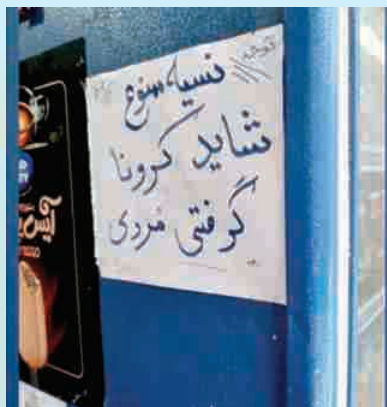 توجه
نسیه ممنوع
شاید کرونا
گرفتی مُردی
آیس